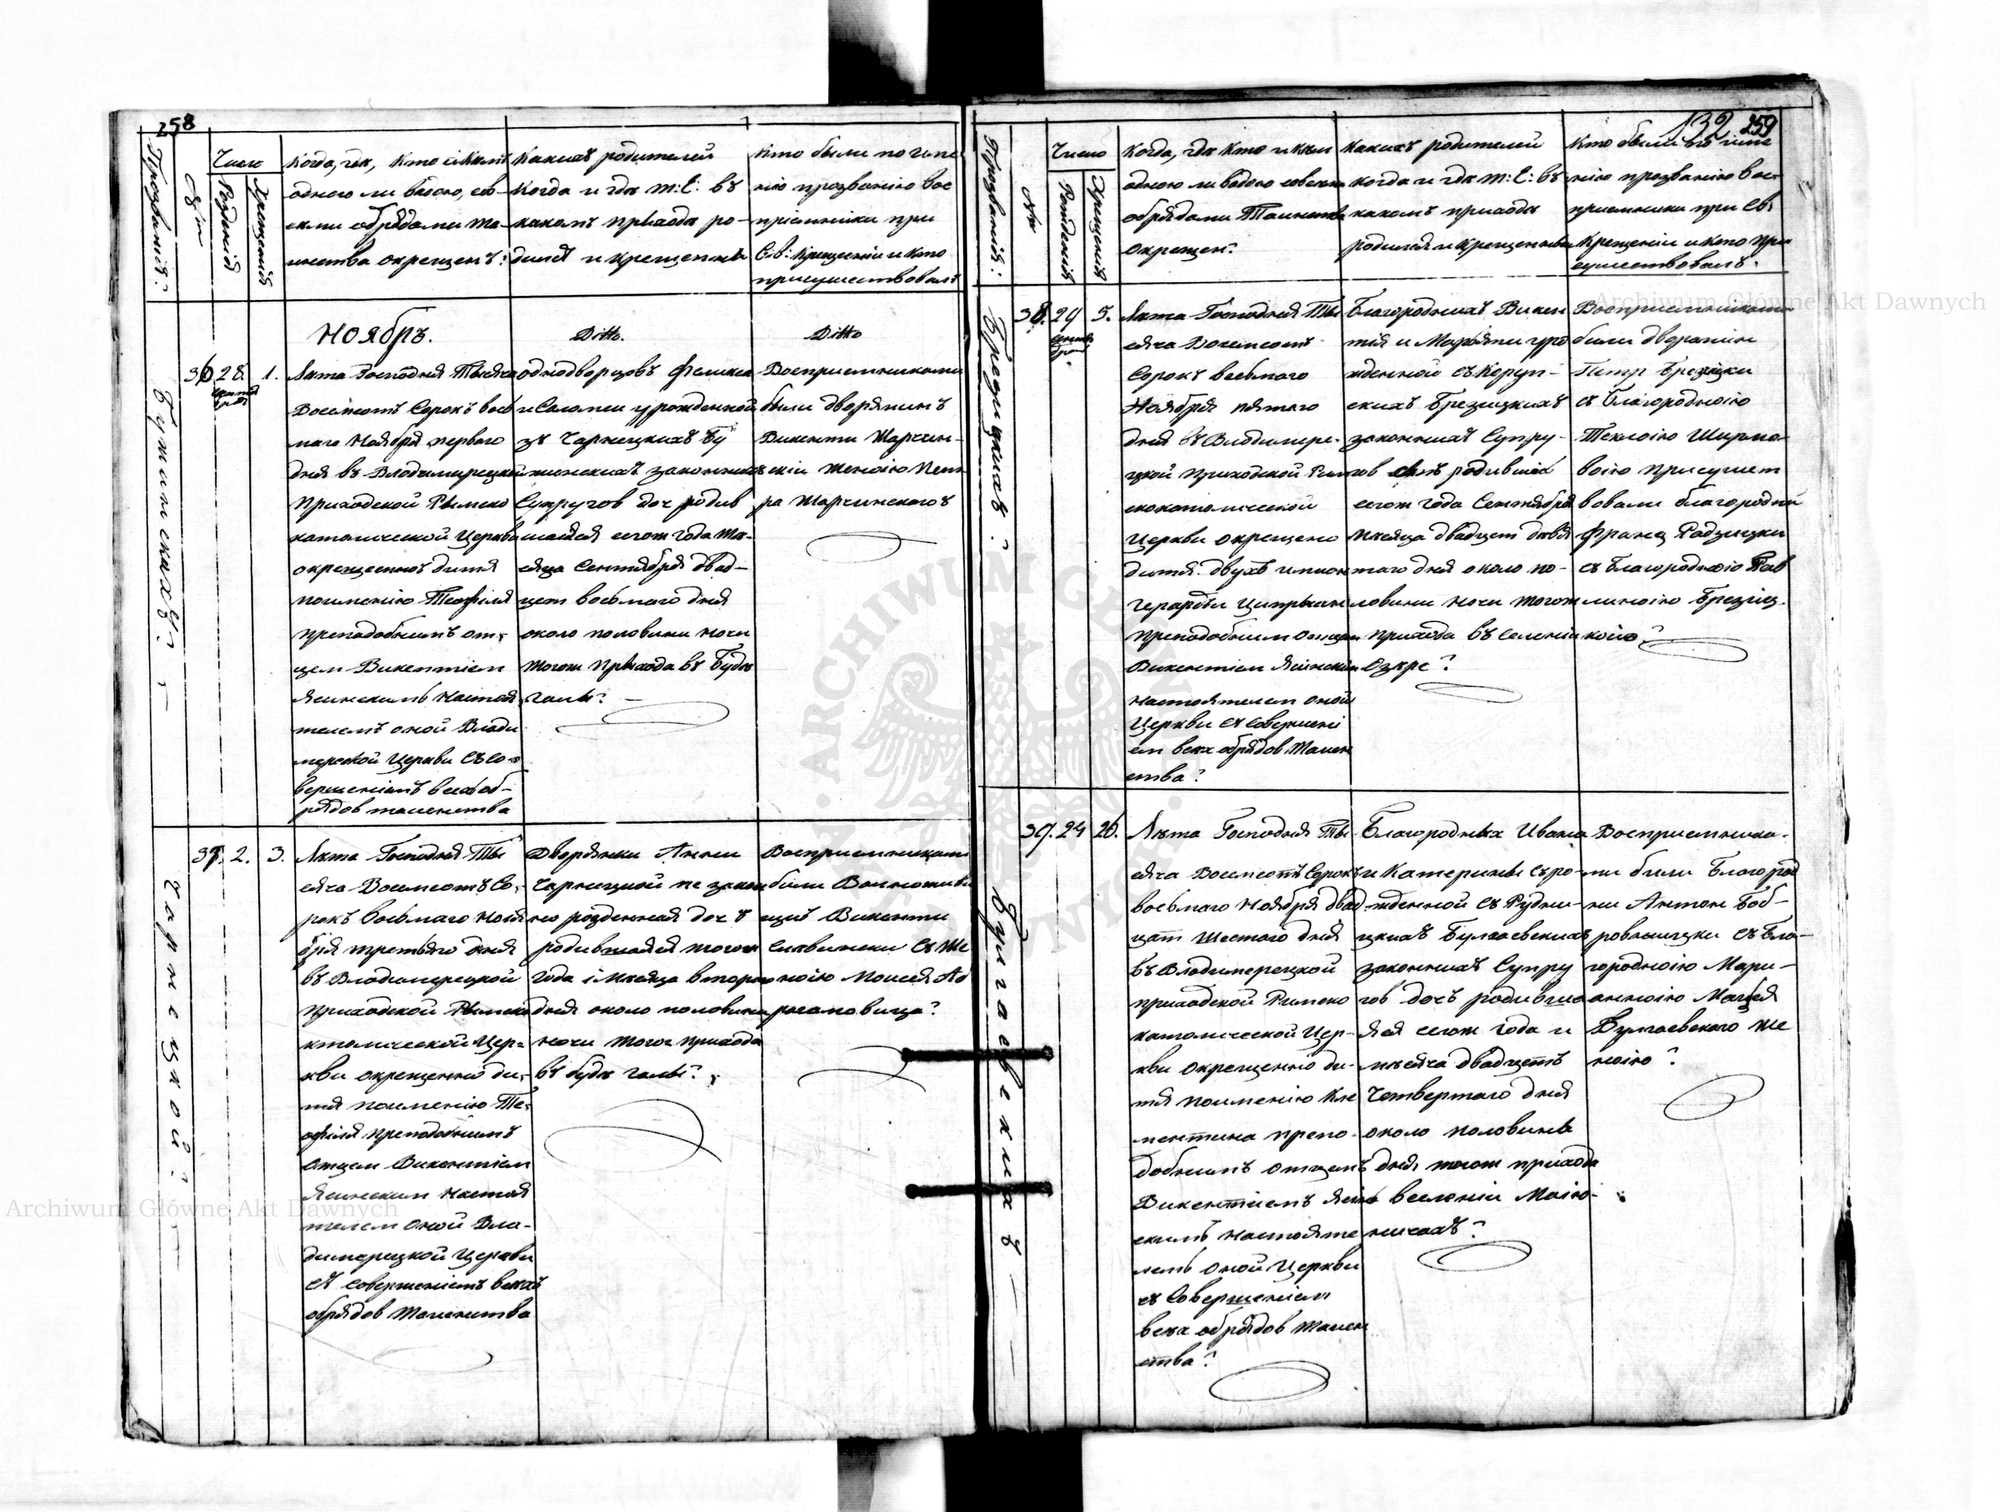 258
Прозваніѣ:
№
Число
Рожденія
Крещенія
Когда, где, кто и кѣмъ
одною ли водою, со всѣ-
ми обрядами та-
инства окрещенъ?
Какихъ родителей
когда и гдѣ т: е: въ
какомъ приходѣ ро-
дился и крещенъ
Кто были по име-
нію прозванію вос
пріемники при
Св: крещеніи и кто
присутствовалъ
Ноябрь.
Ditto.
Ditto
36
28
1.
Лѣта Господня Тысяча
Восемсотъ Сорокъ восъ
маго Ноября перваго
дня въ Владимирецкой
Приходской Римско
католической Церкви
окрещенно дитя
поименію Теофиля
преподобнымъ от-
цем Викентіем
Ясинскимъ Настоя
телемъ оной Влади
мерецкой Церкви съ Со-
вершеніемъ всехъ об-
рядов таинства
однодворцовъ Феликса
и Саломеи урожденной
зъ Чарнецкихъ Бу
законныхъ
Супругов доч родив
шаяся сегож года Ме-
сяца Сентября двад-
цет восьмаго дня
около половины ночи
тогож Прихода въ Будкѣ
Восприемниками
были дворянинъ
Викенти Жарчин-
скій женою Пет
ра Жарчинского
37.
2.
3.
Чарнецкой?
Лѣта Господня Ты
сяча Восемсотъ Со-
рокъ Восьмаго Ноя
бря третьяго дня
въ Владимерецкой
Приходской Римско
католической Цер-
кви окрещенно ди-
тя поименію Те-
офиля преподобнымъ
Отцем Викентіем
Ясинским Настоя
телем оной Вла-
димерецкой Церкви
съ Совершеніемъ всехъ
обрядов Таинства
Дворянки Анны
Чарнецкой не закон
но рожденная доч
родившаяся тогож
года и Мѣсяца втораго
дня около половины
ночи тогож прихода
въ будкѣ
Восприемниками
были
Викенти
съ Же
ною Моисея
132
259
Прозваніѣ:
№
Число
Рожденія
Крещенія
Когда, гдѣ кто и кѣм
одною ли водою совсеми
обрядами Таинства
окрещен?
Какихъ родителей
когда и гдѣ т: е: въ
какомъ приходѣ
родился и крещенъ
Кто были по име
нію прозванію вос-
приемники при Св:
Крещеніи и кто при
сутствовалъ.
38.
29
5.
Брезицкихъ?
Лѣта Господня Ты
сяча Восемсотъ
Сорокъ восьмаго
Ноября пятаго
дня въ Владимере-
цкой Приходской Рим
скокатолической
Церкви окрещено
дитя двухъ имион
Герарда Циприан
преподобным Отцем
Викентіем Ясинским
настоятелем оной
Церкви съ Совершені
ем всех обрядов Таин
ства?
Благородныхъ Викен
тія и Марьяны уро
жденной съ
скихъ Брезицкихъ
законныхъ Супру-
гов сынъ родившійся
сегож года Сентября
мѣсяца двадцет девя
таго дня около по-
ловины ночи тогож
прихода въ Селеніи
Озкре?
Восприемниками
были дворянин
Петр Брезицки
съ Благородною
Теклою Ширма
вою присутст
вовали благородни
Франц Радзицки
съ Благородною Пав
линою Брезиц-
кою?
39.
24
26.
Булгаевскихъ
Лѣта Господня Ты
сяча Восемсотъ Сорокъ
восьмаго Ноября двад
цат шестаго дня
въ Владимерецкой
приходской Римско
католической Цер-
кви окрещенно ди-
тя поименію Кле
ментина препо-
добнымъ отцемъ
Викентіемъ Ясин
скимъ Настояте
лемъ оной Церкви
съ Совершеніем
всех обрядов Таин
ства?
Благородныхъ Ивана
и Катерины съ ро-
жденной съ Рудни-
цкихъ Булгаевскихъ
законныхъ Супру
гов дочъ родивша
яся сегож года и
мѣсяча двадцетъ
Четвертаго дня
около половины
дня, тогож прихода
в Селеніи
Восприемника-
ми были Благород
ни Антон Боб-
ровницки съ Бла-
городною Мари-
анною Мацея
Булгаевского же
ною?
Archiwum Główne Akt Dawnych
Archiwum Główne Akt Dawnych